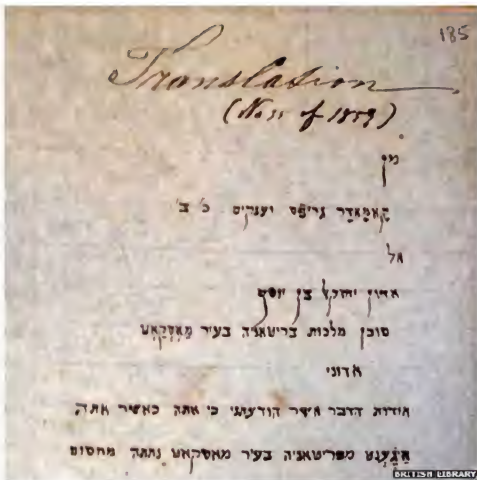 185
Translation
(No 11 of 1859)
מן
קאמאדר גריפס יענקינס כ׳ ב׳
אל
אדון יחזקל בן יוסף
סוכן מלכות בריטאניה בעיר מאסקאט
אדוני
אודות הדבר אשר הודעתני כי אתה כאשר אתה
מבריטאניה בעיר מאסקאט נתתה מחסום
BRITISH LIBRARY